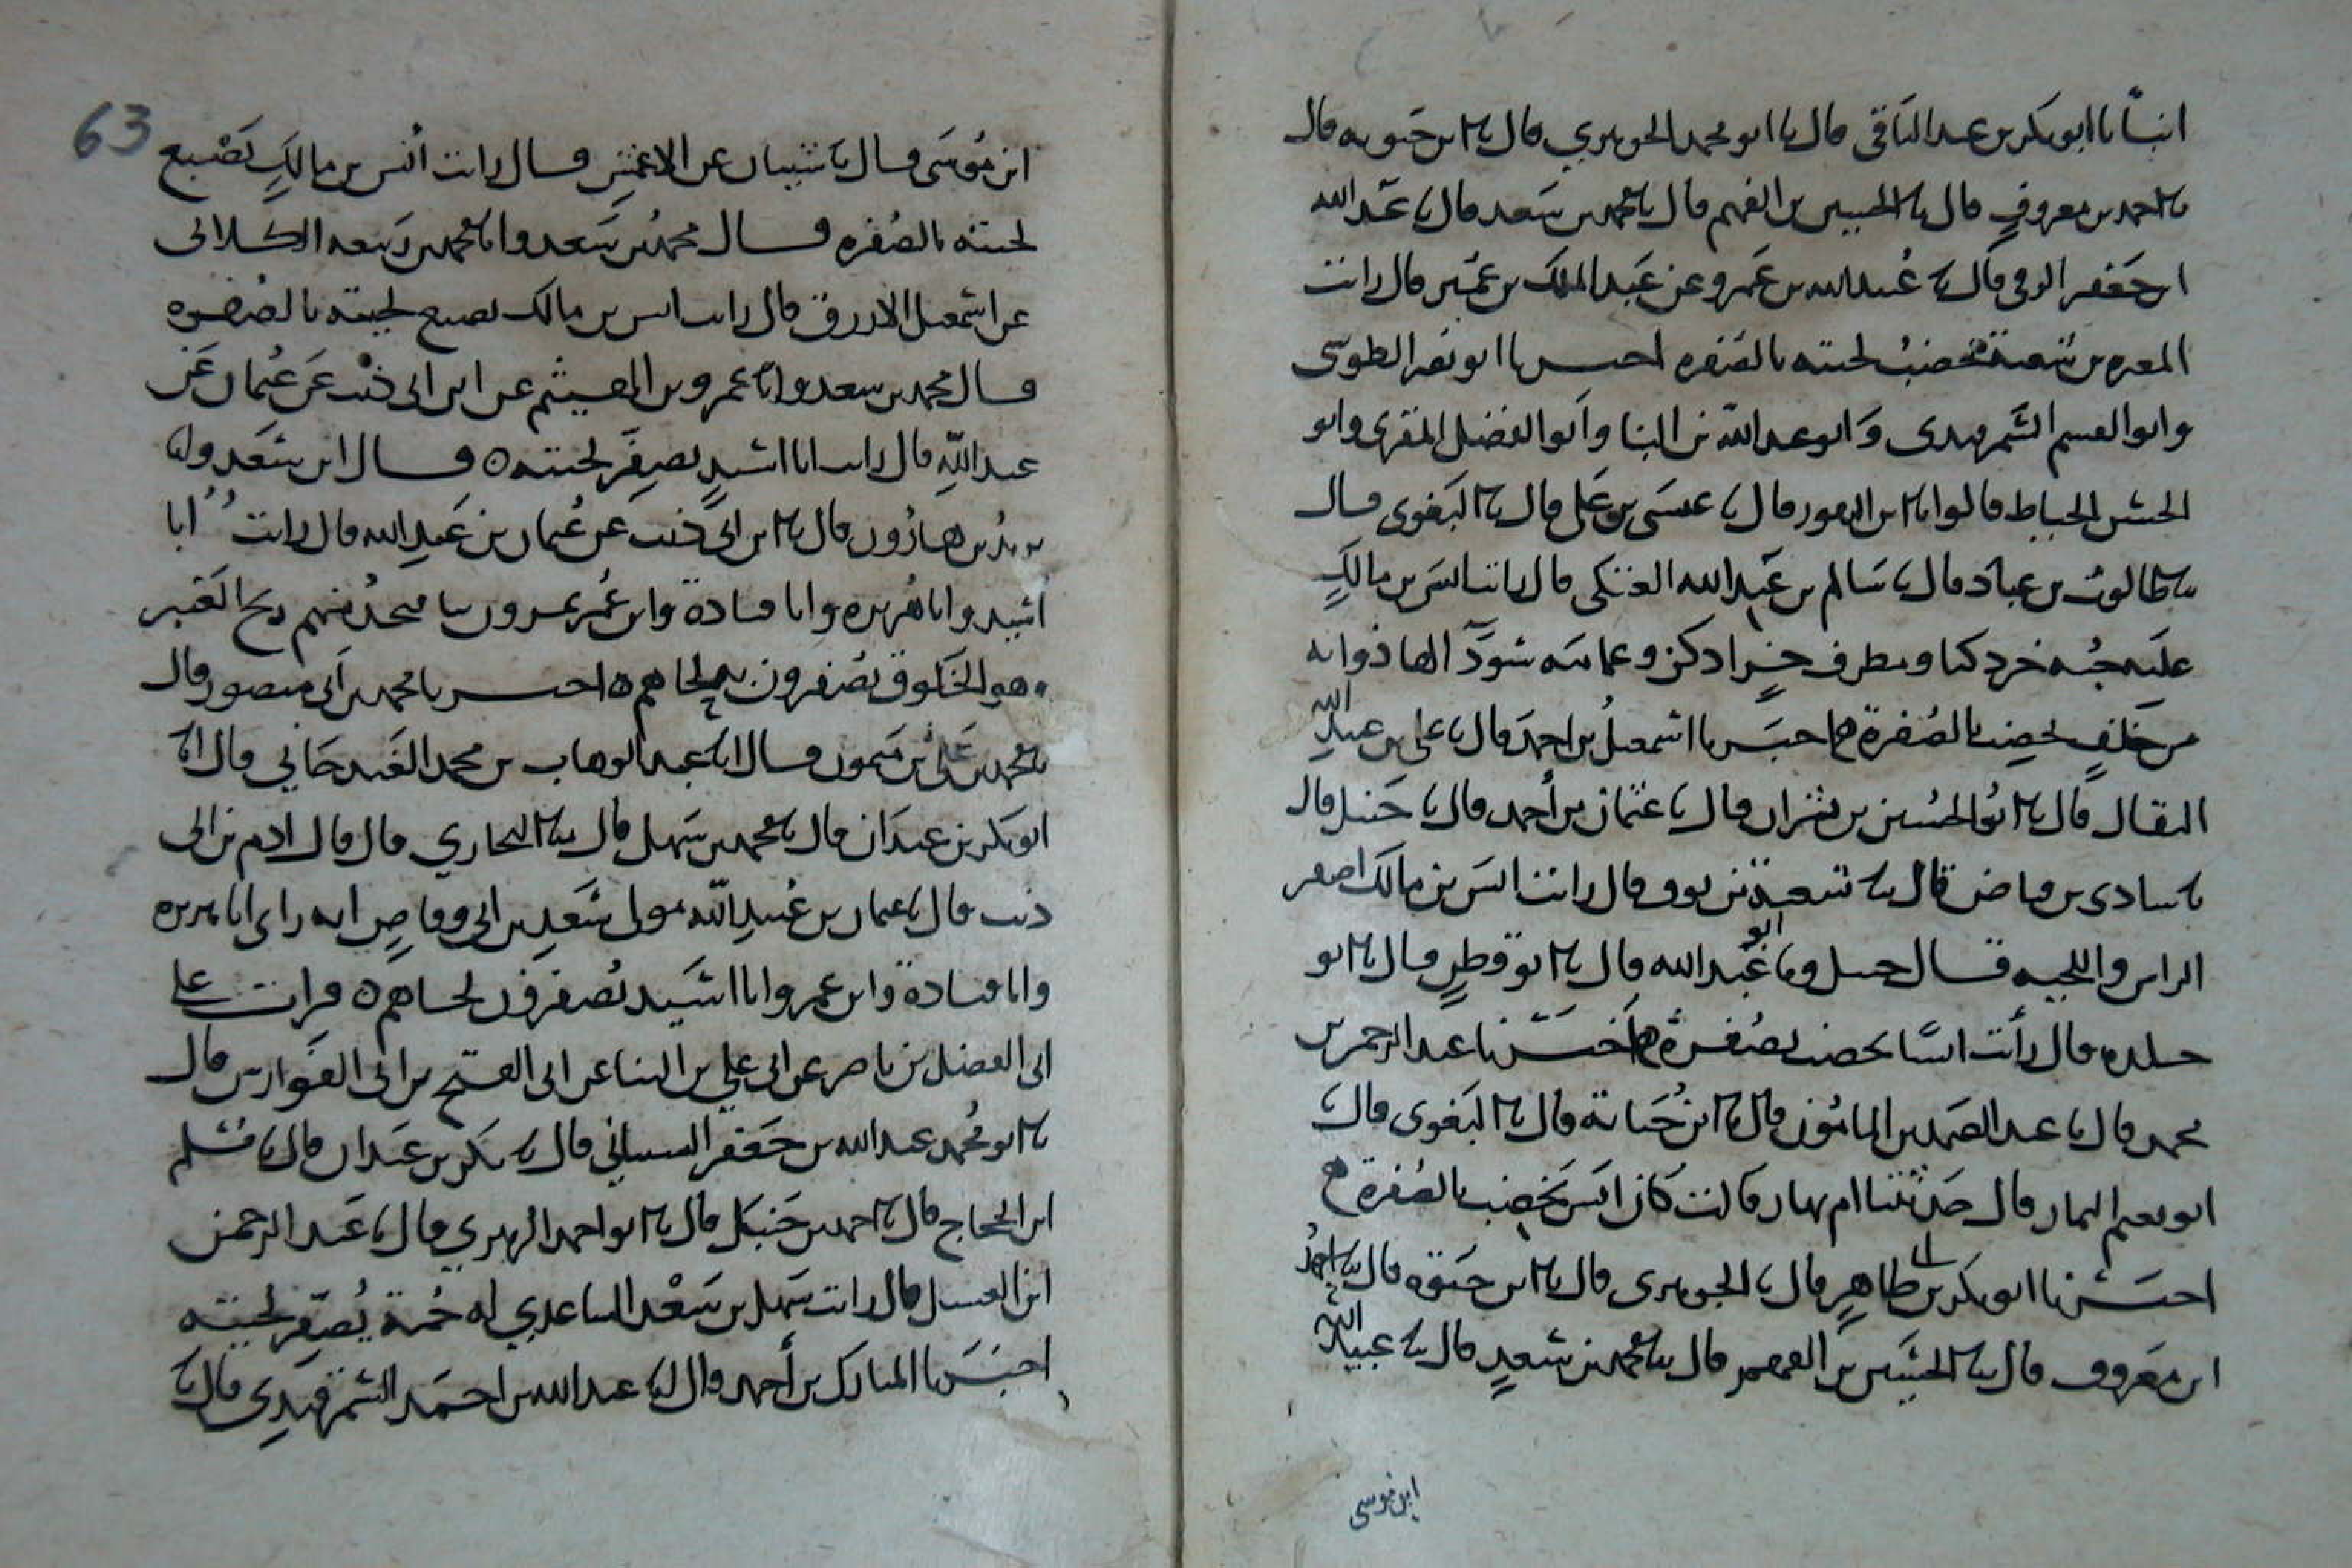 انبأنا ابو بكر بن عبد الباقي قال نا ابو محمد الجوهري قال نا ابن حيويه قال
نا احمد بن معروف قال نا الحسين بن الفهم قال نا محمد بن سعد قال نا عبد الله
ابن جعفر الرقي قال نا عبيد الله بن عمرو عن عبد الملك بن عمير قال رايت
المغيره بن شعبة يخضب لحيته بالصفره اخبرنا ابو نصر الطوسي
وابو القسم السمرقندي وابو عبد الله بن البنا وابو الفضل المقري وابو
الحسن الخياط قالوا انا ابن النقور قال نا عيسى بن علي قال نا البغوي قال
نا طالوت بن عباد قال نا سالم بن عبد الله العتكي قال رايت انس بن مالك
عليه جبه خز دكنا ومطرف خز ادكن وعمامه سودآ لها ذوابه
من خلف يخضب بالصفرة اخبرنا اسمعيل بن احمد قال نا علي بن عبيد الله
البقال قال نا ابو الحسين بن بشران قال نا عثمان بن أحمد قال نا حنبل قال
نا قال نا قال رايت انس بن مالك اصفر
الراس واللحيه قال حنبل ونا ابو عبد الله قال نا ابو قطن قال نا ابو
خلده قال رأيت انسًا يخضب بصفرة اخبرنا عبد الرحمن بن
محمد قال نا عبد الصمد بن المامون قال نا ابن حبابة قال نا البغوي قال نا
ابو نعيم التمار قال حدثتنا ام نهار قالت كان انس يخضب بالصفرة
اخبرنا ابو بكر بن طاهر قال نا الجوهري قال نا ابن حيوه قال نا احمد
ابن معروف قال نا الحسين بن الفهم قال نا محمد بن سعد قال نا عبيد الله
ابن موسى
63
ابن موسى قال نا شيبان عن الاعمش قال رايت انس بن مالك يصبغ
لحيته بالصفره قال محمد بن سعد وانا محمد بن ربيعه الكلابي
عن اسمعيل الازرق قال رايت انس بن مالك يصبغ لحيته بالصفره
قال محمد بن سعد وانا عمرو بن الهيثم عن ابن ابي ذئب عن عثمان بن
عبيد الله قال رايت ابا اسيد يصفر لحيته ٥ قال ابن سعد وانا
يزيد بن هارون قال نا ابن ابي ذئب عن عثمان بن عبيد الله قال رايت ابا
اسيد وابا هريره وابا قتادة وابن عمر يمرون بنا فنجد منهم ريح العبير
وهو الخلوق يصفرون به لحاهم ٥ اخبرنا محمد بن ابي منصور قال
نا محمد بن علي بن ميمون قال انا عبد الوهاب بن محمد الغندجاني قال انا
ابو بكر بن عبدان قال نا محمد بن سهل قال نا البخاري قال قال ادم نا ابن ابي
ذئب قال نا عثمان بن عبيد الله مولى سعد بن ابي وقاص انه راى ابا هريره
وابا قتادة وابن عمر وابا اسيد يصفرون لحاهم ٥ قرات على
ابي الفضل بن ناصر عن ابي علي بن البنا عن ابي الفتح بن ابي الفوارس قال
نا ابو محمد عبد الله بن جعفر قال نا بكر بن عبدان قال نا مسلم
ابن الحجاج قال نا احمد بن حنبل قال نا ابو احمد الزبيري قال نا عبد الرحمن
ابن الغسيل قال رايت سهل بن سعد الساعدي له جمة يصفر لحيته
اخبرنا المبارك بن أحمد قال انا عبد الله بن احمد السمرقندي قال نا